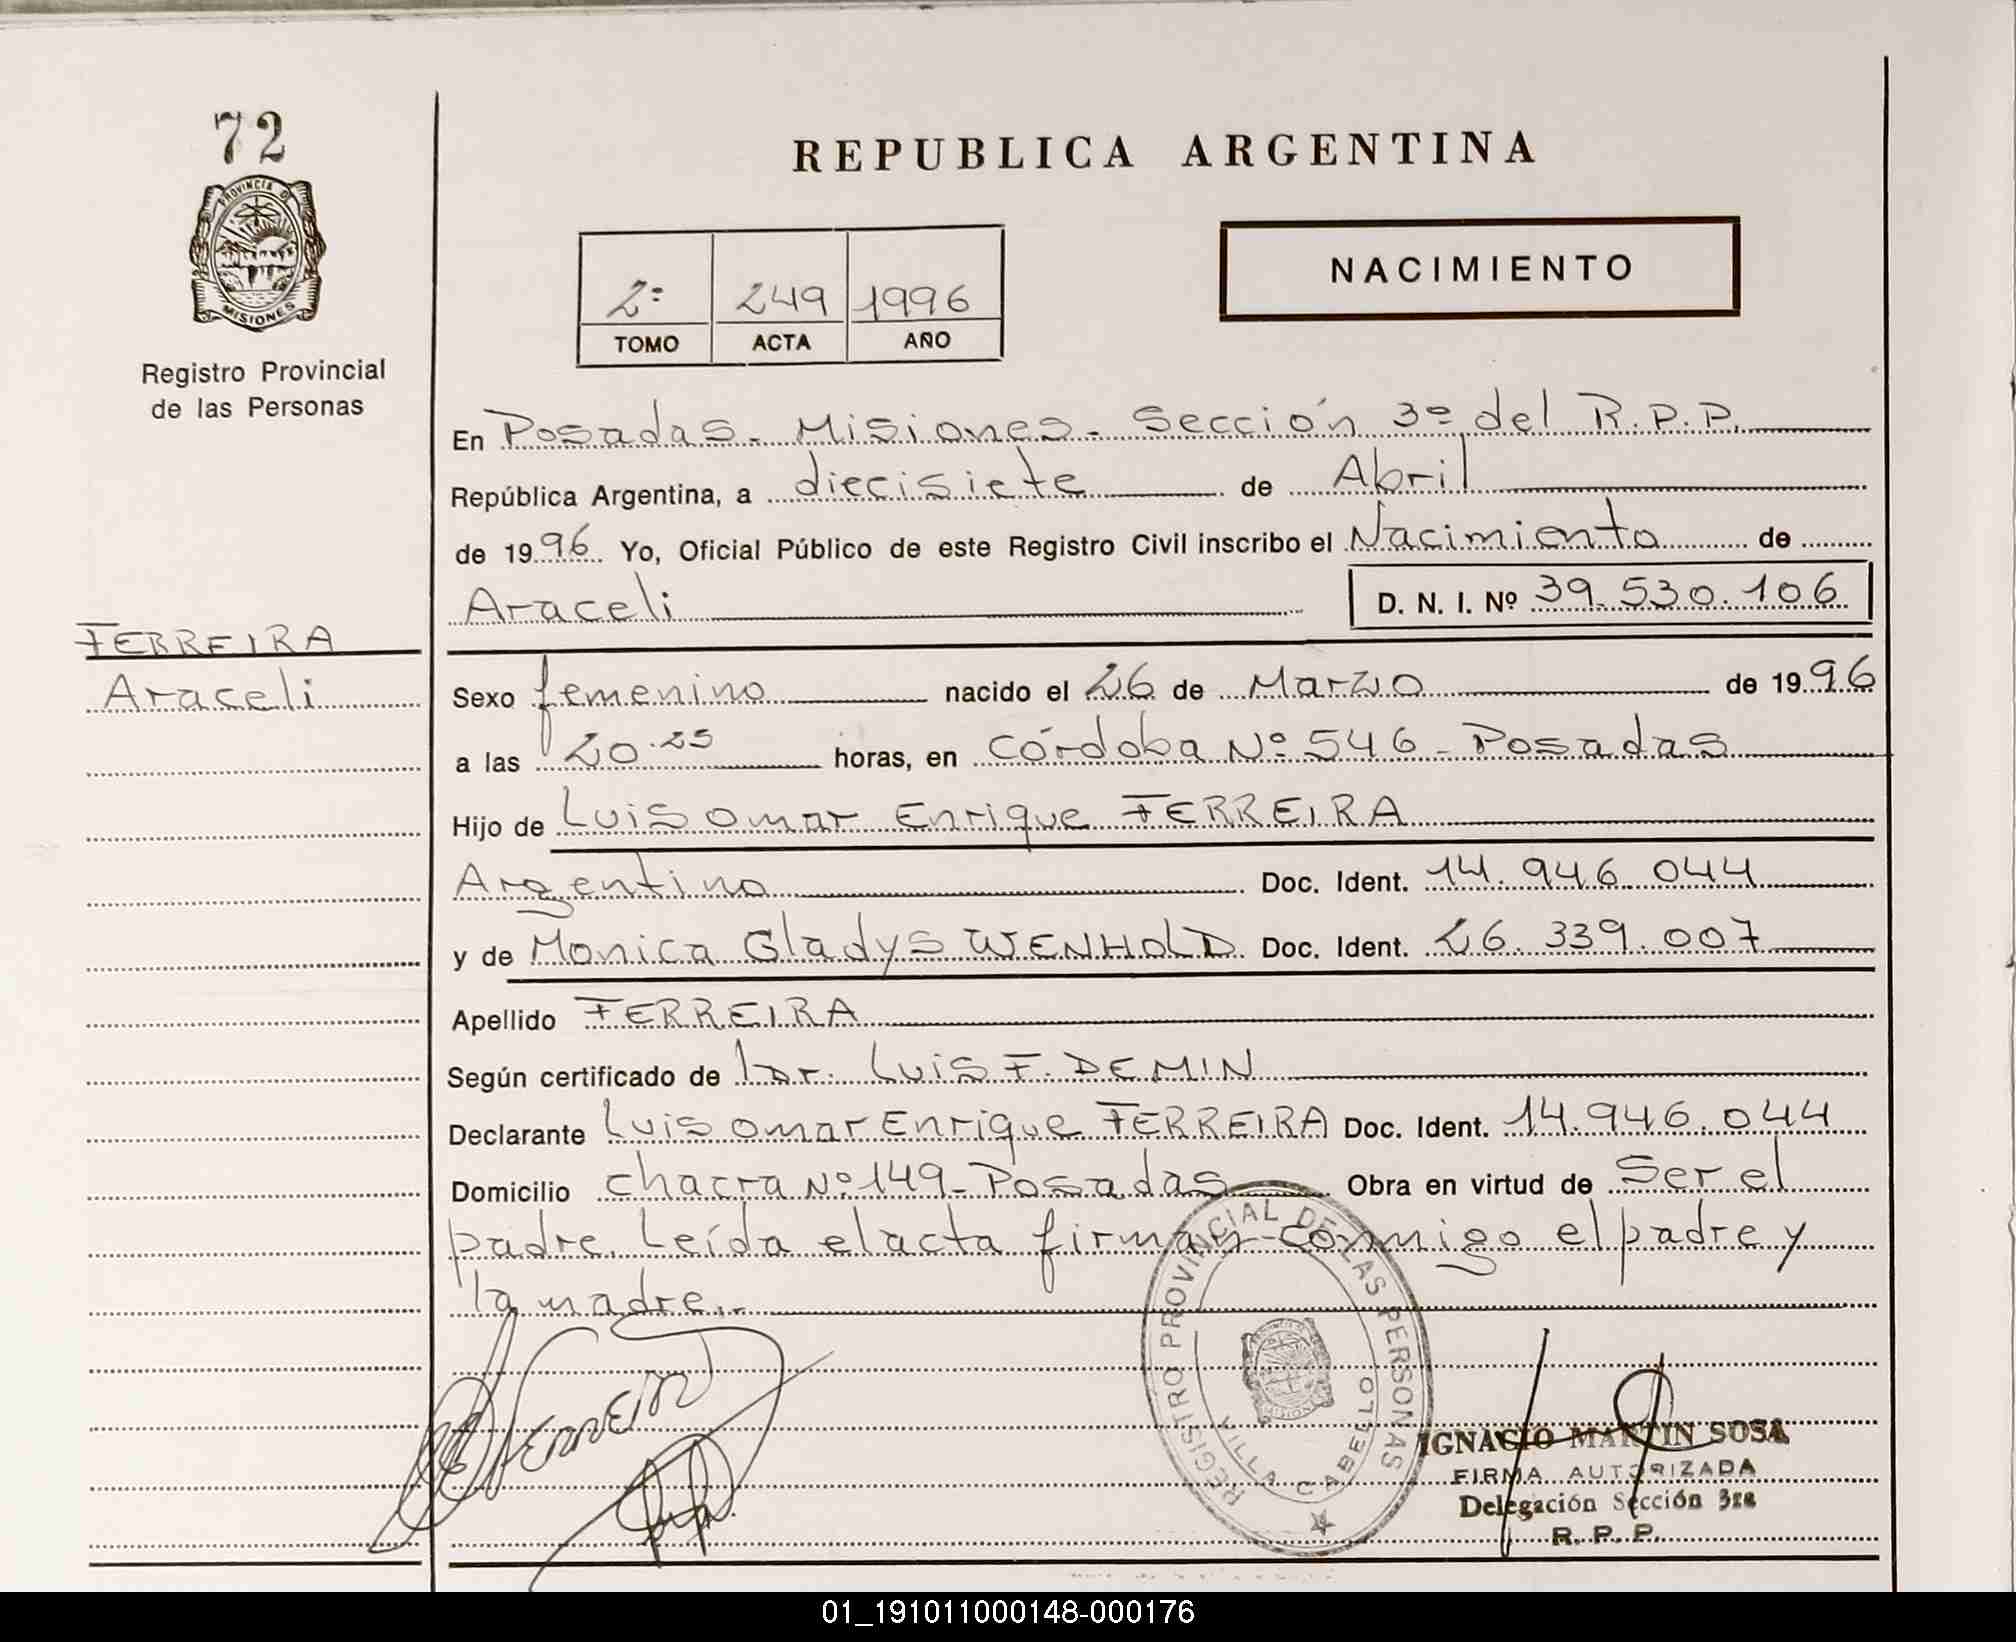 72
PROVINCIA DE
MISIONES
Registro Provincial
de las Personas
FERREIRA
Araceli
REPUBLICA ARGENTINA
2º 249 1996
TOMO ACTA AÑO
NACIMIENTO
En Posadas - Misiones - Sección 3º del R.P.P.
República Argentina, a diecisiete de Abril
de 1996 Yo, Oficial Público de este Registro Civil inscribo el Nacimiento de
Araceli D. N. I. Nº 39.530.106
Sexo femenino nacido el 26 de Marzo de 1996
a las 20.25 horas, en Córdoba Nº 546 - Posadas
Hijo de Luis Omar Enrique FERREIRA
Argentino Doc. Ident. 14.946.044
y de Monica Gladys WENHOLD Doc. Ident. 26.339.007
Apellido FERREIRA
Según certificado de Dr. Luis F. DEMIN
Declarante Luis Omar Enrique FERREIRA Doc. Ident. 14.946.044
Domicilio chacra Nº 149 - Posadas Obra en virtud de Ser el
padre. Leída el acta firman conmigo el padre y
la madre.-
REGISTRO PROVINCIAL DE LAS PERSONAS
VILLA CABELLO
IGNACIO MARTIN SOSA
FIRMA AUTORIZADA
Delegación Sección 3ra
R. P. P.
01_191011000148-000176